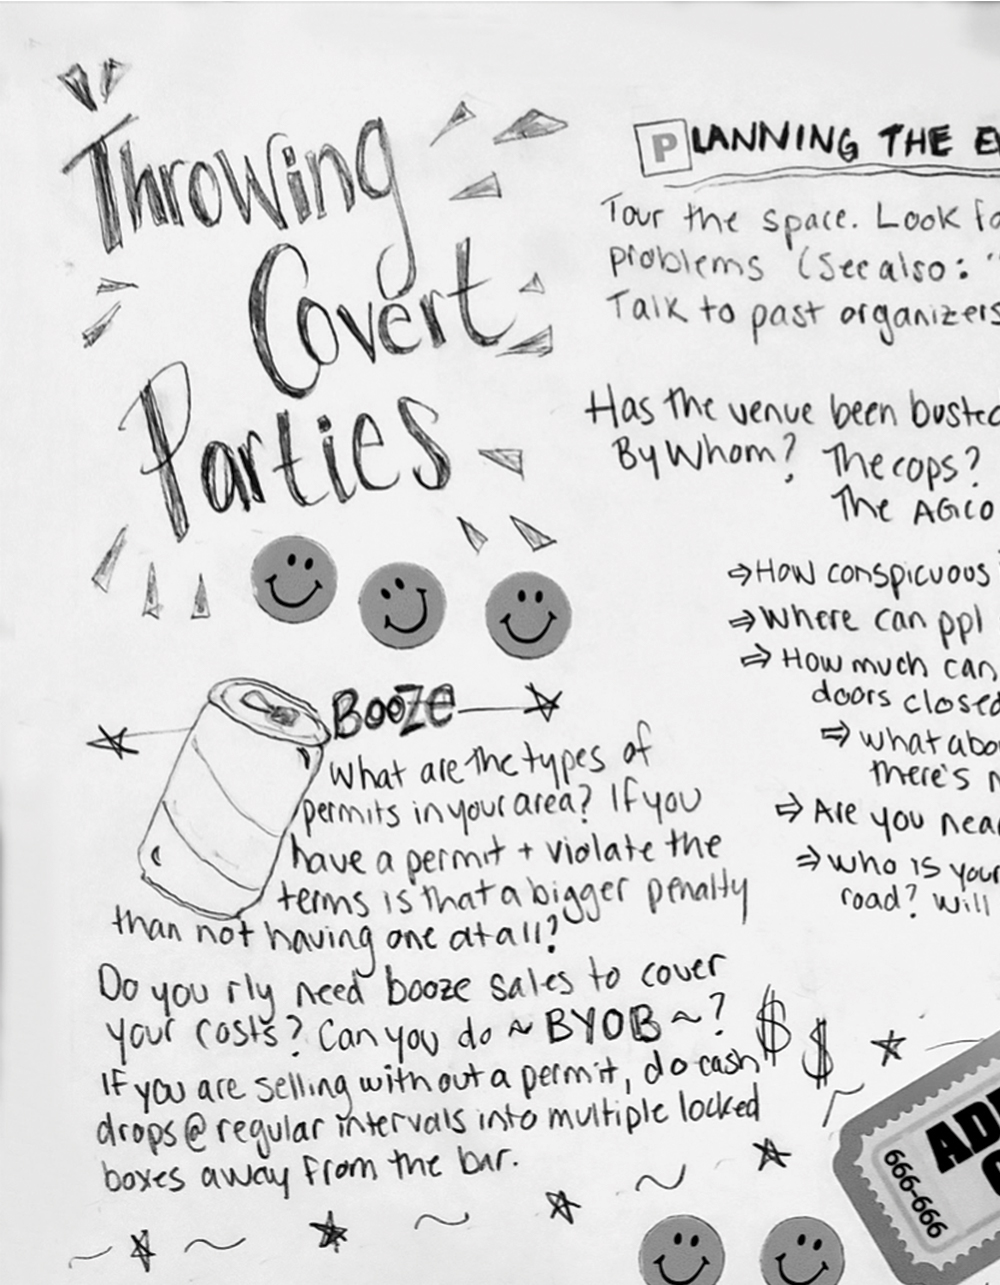 Throwing
Covert
Parties
BOOZE
What are the types of
permits in your area? If you
have a permit + violate the
terms is that a bigger penalty
than not having one at all?
Do you rly need booze sales to cover
your costs? Can you do ~ BYOB ~?
If you are selling without a permit, do cash
drops @ regular intervals into multiple locked
boxes away from the bar.
$ $
PLANNING THE E
Tour the space. Look fo
problems (See also: "
Talk to past organizers
Has the venue been busted
By Whom? The cops?
The AGCO
⇒ How conspicuous
⇒ Where can ppl
⇒ How much can
doors closed
⇒ what abou
there's
⇒ Are you near
⇒ who is your
road? Will
AD
666-666